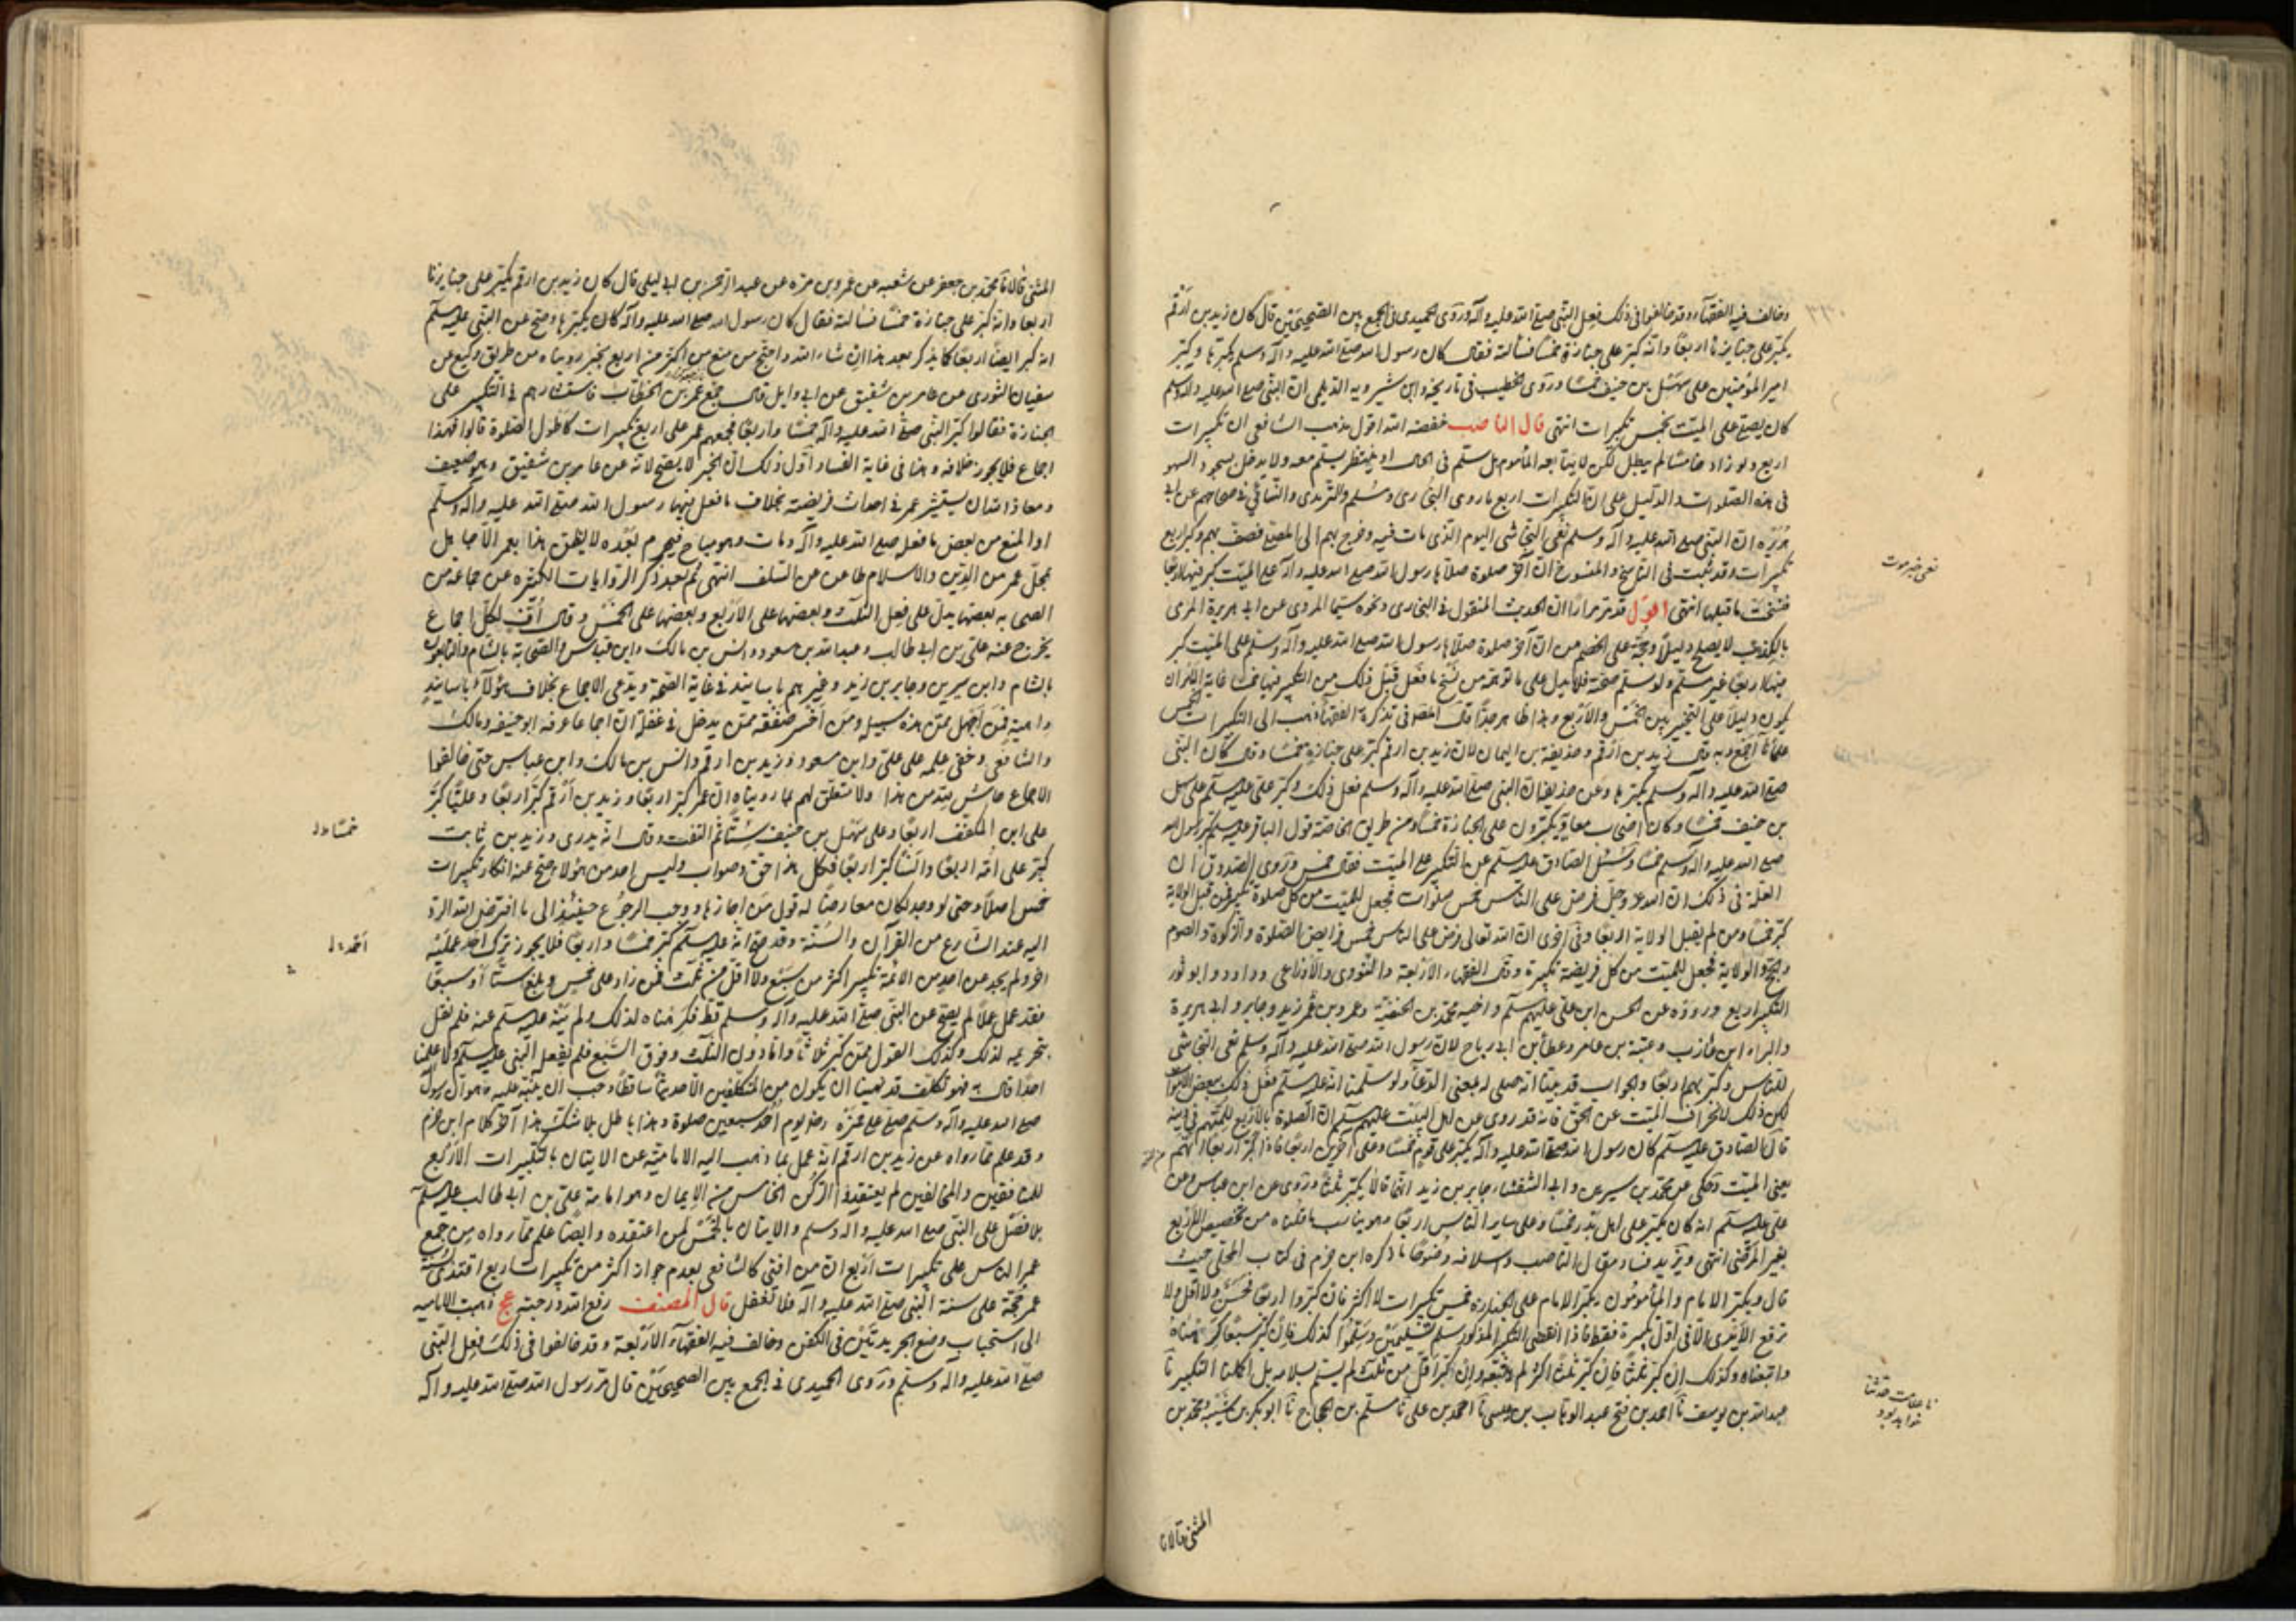 وخالف فيه الفقهاء وقد خالفوا في ذلك فعل النبي صلى الله عليه وآله وروى الحميدي في الجمع بين الصحيحين قال كان زيد بن أرقم
يكبر على جنايزنا اربعا وانه كبر على جنازة خمسا فسألته فقال كان رسول الله صلى الله عليه وآله وسلم يكبرها وكبر
امير المؤمنين على سهل بن حنيف خمسا وروى الخطيب في تاريخه وابن شيرويه الديلمي ان النبي صلى الله عليه وآله وسلم
كان يصلي على الميت بخمس تكبيرات انتهى قال الناصب خفضه الله اقول مذهب الشافعي ان تكبيرات
اربع ولو زاد خامسا لم يبطل لكن لا يتابعه المأموم بل يسلم في الحال او ينتظر ليسلم معه ولا مدخل لسجود السهو
في هذه الصلوات والدليل على ان التكبيرات اربع ما روى البخاري ومسلم والترمذي والنسائي في صحاحهم عن ابي
هريرة ان النبي صلى الله عليه وآله وسلم نعى النجاشي اليوم الذي مات فيه وخرج بهم الى المصلى فصف بهم وكبر اربع
تكبيرات وقد ثبت في الناسخ والمنسوخ ان آخر صلوة صلاها رسول الله صلى الله عليه وآله على الميت كبر فيها اربعا
فنسخت ما قبلها انتهى اقول قد مر مرارا ان الحديث المنقول في البخاري ونحوه سيما المروي عن ابي هريرة المرمى
بالكذب لا يصلح دليلا وحجة على الخصم من ان آخر صلوة صلاها رسول الله صلى الله عليه وآله وسلم على الميت كبر
فيها اربعا غير مسلم ولو سلم صحته فلا يدل على ما توهمه من نسخ ما فعل قبل ذلك من التكبير فيها خمسا غاية الامر ان
يكون دليلا على التخيير بين الخمس والاربع وهذا ظاهر جدا قال المص في تذكرة الفقهاء ذهب الى التكبيرات الخمس
علمائنا اجمع وبه قال زيد بن ارقم وحذيفة بن اليمان لان زيد بن ارقم كبر على جنازة خمسا وقال كان النبي
صلى الله عليه وآله وسلم يكبرها وعن حذيفة ان النبي صلى الله عليه وآله وسلم فعل ذلك وكبر علي عليه السلام على سهل
بن حنيف خمسا وكان اصحاب معاذ يكبرون على الجنازة خمسا ومن طريق الخاصة قول الباقر عليه السلام كبر رسول الله
صلى الله عليه وآله وسلم خمسا وسئل الصادق عليه السلام عن التكبير على الميت فقال خمس وروى الصدوق ان
العلة في ذلك ان الله عز وجل فرض على الناس خمس صلوات فجعل للميت من كل صلوة تكبيرة فمن قبل الولاية
كبر خمسا ومن لم يقبل الولاية اربعا وفي اخرى ان الله تعالى فرض على الناس خمس فرايض الصلوة والزكوة والصوم
والحج والولاية فجعل للميت من كل فريضة تكبيرة وقال الفقهاء الاربعة والثوري والاوزاعي وداود وابو ثور
التكبير اربع ورووه عن الحسن ابن علي عليهم السلام واخيه محمد بن الحنفية وعمر وبن عمر وزيد وجابر وابي هريرة
والبراء ابن عازب وعتبة بن عامر وعطاء بن ابي رباح لان رسول الله صلى الله عليه وآله وسلم نعى النجاشي
للناس وكبر بهم اربعا والجواب قد بينا انه صلى له بمعنى الدعاء ولو سلمنا انه عليه السلام فعل ذلك ببعض الاموات
لكن ذلك لانحراف الميت عن الحق فانه قد روي عن اهل البيت عليهم السلام ان الصلوة بالاربع للمتهم في دينه
قال الصادق عليه السلام كان رسول الله صلى الله عليه وآله يكبر على قوم خمسا وعلى آخرين اربعا فاذا كبر اربعا اتهم
يعني الميت وحكى عن محمد بن سيرين وابي الشعثاء جابر بن زيد انهما قالا يكبر ثلثا وروى عن ابن عباس وعن
علي عليه السلام انه كان يكبر على اهل بدر خمسا وعلى ساير الناس اربعا وهو يناسب ما قلناه من تخصيص الاربع
بغير المرضي انتهى ويزيد فساد مقال الناصب واسلافه وضوحا ما ذكره ابن حزم في كتاب المحلى حيث
قال ويكبر الامام والمأمومون بتكبير الامام على الجنازة خمس تكبيرات لا اكثر فان كبروا اربعا فحسن ولا اقل ولا
ترفع الايدي الا في اول تكبيرة فقط فاذا انقضى التكبير المذكور سلم تسليمتين وسلموا كذلك فان كبر سبعا كرهناه
واتبعناه وكذلك ان كبر ثلثا فان كبر ثلثا اكثر لم نتبعه وان كبر اقل من ثلث لم يسلم بسلامه بل اكملنا التكبير نا
عبد الله بن يوسف نا احمد بن فتح عبد الوهاب بن عيسى نا احمد بن علي نا مسلم بن الحجاج نا ابو بكر بن شيبة ومحمد بن
المثنى قالا نا
نعى خبر موت
نا علامت حدثنا
المثنى قالا نا محمد بن جعفر عن شعبه عن عمرو بن مره عن عبد الرحمن بن ابي ليلى قال كان زيد بن ارقم يكبر على جنايزنا
اربعا وانه كبر على جنازة خمسا فسالته فقال كان رسول الله صلى الله عليه وآله كان يكبرها وصح عن النبي عليه السلم
انه كبر ايضا اربعا كما يذكر بعد هذا ان شاء الله واحتج من منع من اكثر من اربع بخبر رويناه من طريق وكيع عن
سفيان الثوري عن عامر بن شقيق عن ابي وايل قال جمع عمر بن الخطاب فاستشارهم في التكبير على
الجنازة فقالوا كبر النبي صلى الله عليه وآله خمسا واربعا فجمعهم عمر على اربع تكبيرات كاطول الصلوة قالوا فهذا
اجماع فلا يجوز خلافه وهذا في غاية الفساد اول ذلك ان الخبر لا يصح لانه عن عامر بن شقيق وهو ضعيف
ومعاذ الله ان يستشير عمر في احداث فريضة بخلاف ما فعل فيها رسول الله صلى الله عليه وآله وسلم
او المنع من بعض ما فعله صلى الله عليه وآله ومات وهو مباح فيحرم بعده لا يظن هذا بعمر الا جاهل
بمحل عمر من الدين والاسلام طاعن عن السلف انتهى ثم بعد ذكر الروايات الكثيرة عن جماعة من
الصحابه بعضها يدل على فعل الثلث وبعضها على الاربع وبعضها على الخمس وقال اف لكل اجماع
يخرج عنه علي بن ابي طالب وعبد الله بن مسعود وانس بن مالك وابن عباس والصحابة بالشام والتابعون
بالشام وابن سيرين وجابر بن زيد وغيرهم باسانيد في غاية الصحة ويدعى الاجماع بخلاف هؤلاء باسانيد
واهية فمن اجهل ممن هذه سبيله ومن اخسر صفقة ممن يدخل في عقله ان اجماعا عرفه ابو حنيفه ومالك
والشافعي وخفى علمه على علي وابن مسعود وزيد بن ارقم وانس بن مالك وابن عباس حتى خالفوا
الاجماع حاش لله من هذا ولا متعلق لهم بما رويناه ان عمر كبر اربعا وزيد بن ارقم كبر اربعا وعليا كبر
على ابن المكفف اربعا وعلى سهل بن حنيف ستا ثم التفت وقال انه بدرى وزيد بن ثابت
كبر على امه اربعا وانسا كبر اربعا فكل هذا حق وصواب وليس احد من هؤلاء صح عنه انكار تكبيرات
خمس اصلا وحتى لو وجد لكان معارضا له قول من اجازها ووجب الرجوع حينئذ الى ما افترض الله الرد
اليه عند التنازع من القرآن والسنة وقد صح انه عليه السلم كبر خمسا واربعا فلا يجوز ترك احد عمليه
اخر ولم يجد عن احد من الائمة تكبير اكثر من سبع ولا اقل من ثلث فمن زاد على خمس وبلغ ستا او سبعا
فقد عمل عملا لم يصح عن النبي صلى الله عليه وآله وسلم قط فكرهناه لذلك ولم ينه عليه السلم عنه فلم نقل
بتحريمه لذلك وكذلك القول ممن كبر ثلاثا واما دون الثلث وفوق السبع فلم يفعله النبي عليه السلم ولا علمنا
احدا قال به فهو تكلف قد نهينا ان نكون من المتكلفين الا حديثا ساقطا وجب ان ينبه عليه وهو ان رسول
صلى الله عليه وآله وسلم صلى على حمزة رض يوم احد سبعين صلوة وهذا باطل بلا شك هذا آخر كلام ابن حزم
وقد علم مما رواه عن زيد بن ارقم انه عمل بما ذهب اليه الامامية عن الاتيان بالتكبيرات الاربع
للمنافقين والمخالفين لم يعتقدوا الركن الخامس من الايمان وهو امامة علي بن ابي طالب عليه السلم
بلا فصل على النبي صلى الله عليه وآله وسلم والاتيان بالخمس لمن اعتقده وايضا علم مما رواه من جمع
عمر الناس على تكبيرات اربع ان من افتى كالشافعي بعدم جواز اكثر من تكبيرات اربع اقتدى سنة
عمر حجة على سنة النبي صلى الله عليه وآله فلا تغفل قال المصنف رفع الله درجته عج ذهبت الامامية
الى استحباب وضع الجريدتين في الكفن وخالف فيه الفقهاء الاربعة وقد خالفوا في ذلك فعل النبي
صلى الله عليه وآله وسلم وروى الحميدي في الجمع بين الصحيحين قال مر رسول الله صلى الله عليه وآله